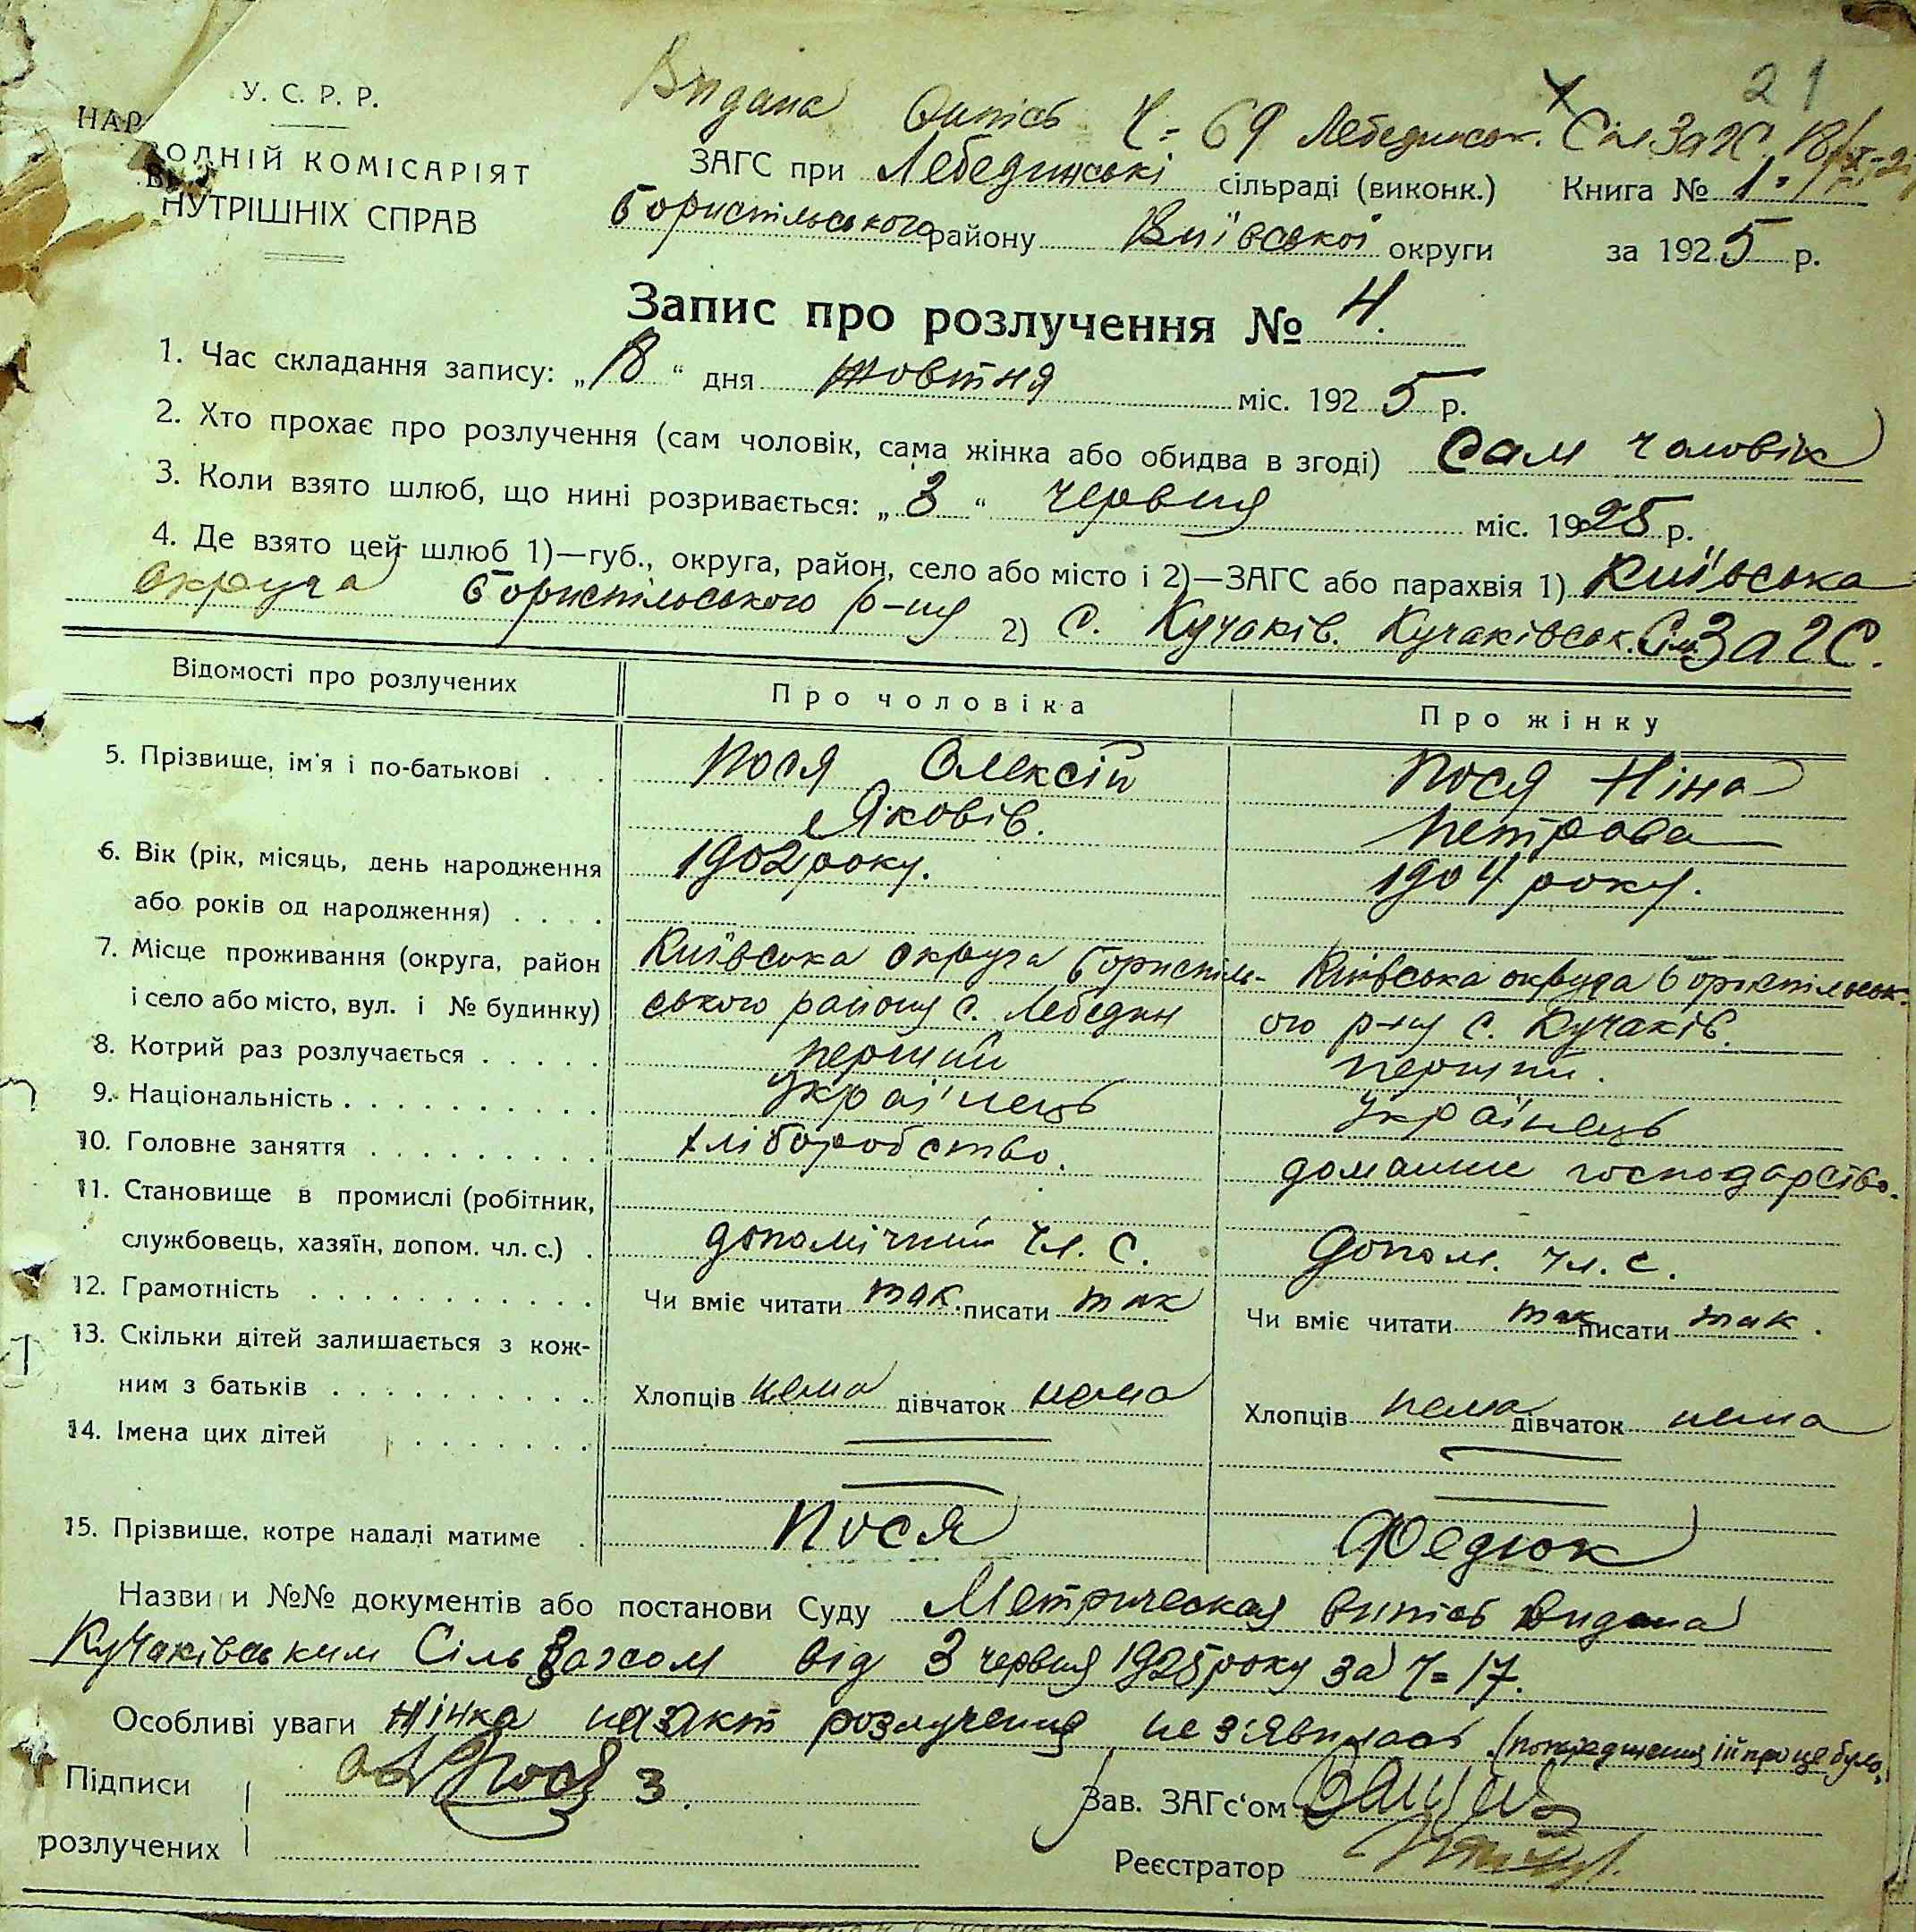 21
У. С. Р. Р.
НАР
ОДНІЙ КОМІСАРІЯТ
НУТРІШНІХ СПРАВ
Видана випісь Ч= 69 Лебединськ. СілЗаГС 18/X-25
ЗАГС при Лебединські сільраді (виконк.) Книга № 1
Бориспільського району Київської округи за 1925 р.
Запис про розлучення № 4.
1. Час складання запису: „18“ дня жовтня міс. 1925 р.
2. Хто прохає про розлучення (сам чоловік, сама жінка або обидва в згоді) Сам чоловік
3. Коли взято шлюб, що нині розривається: „3“ червня міс. 1925 р.
4. Де взято цей шлюб 1)—губ., округа, район, село або місто і 2)—ЗАГС або парахвія 1) Київська
округа Бориспільського р-ну 2) С. Кучаків. Кучаківськ. Сіл.ЗаГС.
Відомості про розлучених Про чоловіка Про жінку
5. Прізвище, ім'я і по-батькові . . . Пося Олексій Пося Ніна
Яковів. Петрова
6. Вік (рік, місяць, день народження 1902 року. 1904 року.
або років од народження) . . . .
7. Місце проживання (округа, район Київська округа Бориспіль- Київська округа Боріспільськ-
і село або місто, вул. і № будинку) ського району с. Лебедин ого р-ну с. Кучаків.
8. Котрий раз розлучається . . . . . перший перший.
9. Національність . . . . . . . . . . українець українець
10. Головне заняття . . . . . . . . . хліборобство. домашнє господарство.
11. Становище в промислі (робітник,
службовець, хазяїн, допом. чл. с.) . допомічний чл. с. Допом. чл. с.
12. Грамотність . . . . . . . . . . . Чи вміє читати так. писати так Чи вміє читати так писати так.
13. Скільки дітей залишається з кож-
ним з батьків . . . . . . . . . . Хлопців нема дівчаток нема Хлопців нема дівчаток нема
14. Імена цих дітей . . . . . . . .
15. Прізвище, котре надалі матиме . Пося Федюк
Назви и №№ документів або постанови Суду Метрическая випісь видана
Кучаківським СільЗагсом від 3 червня 1925 року за Ч= 17.
Особливі уваги жінка на акт розлучення не з'явилась (попередження їй про це було)
Підписи Пося Зав. ЗАГс‘ом
розлучених Реєстратор